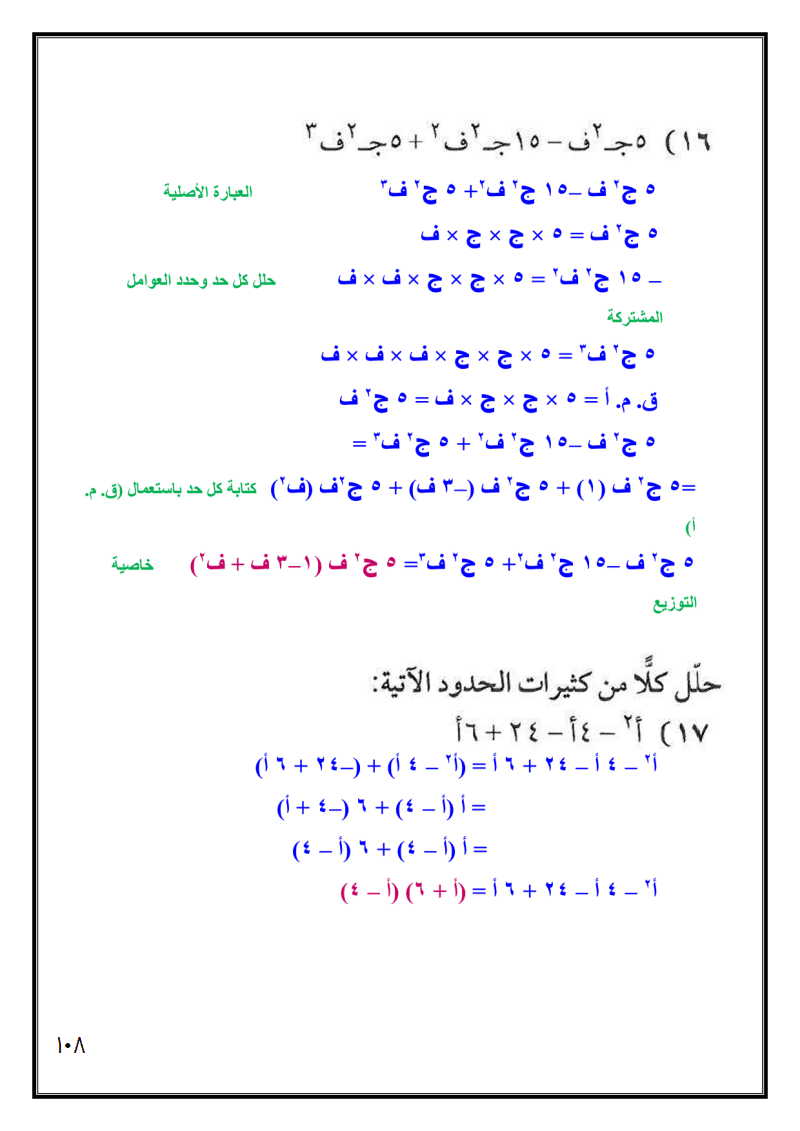 ١٦) ٥جـ٢ف – ١٥جـ٢ف٢ + ٥جـ٢ف٣
٥ ج٢ ف –١٥ ج٢ ف٢+ ٥ ج٢ ف٣ العبارة الأصلية
٥ ج٢ ف = ٥ × ج × ج × ف
– ١٥ ج٢ ف٢ = ٥ × ج × ج × ف × ف حلل كل حد وحدد العوامل
المشتركة
٥ ج٢ ف٣ = ٥ × ج × ج × ف × ف × ف
ق. م. أ = ٥ × ج × ج × ف = ٥ ج٢ ف
٥ ج٢ ف –١٥ ج٢ ف٢ + ٥ ج٢ ف٣ =
=٥ ج٢ ف (١) + ٥ ج٢ ف (–٣ ف) + ٥ ج٢ف (ف٢) كتابة كل حد باستعمال (ق. م.
أ)
٥ ج٢ ف –١٥ ج٢ ف٢+ ٥ ج٢ ف٣= ٥ ج٢ ف (١–٣ ف + ف٢) خاصية
التوزيع
حلّل كلًّا من كثيرات الحدود الآتية:
١٧) أ٢ – ٤أ – ٢٤ + ٦أ
أ٢ – ٤ أ – ٢٤ + ٦ أ = (أ٢ – ٤ أ) + (–٢٤ + ٦ أ)
= أ (أ – ٤) + ٦ (–٤ + أ)
= أ (أ – ٤) + ٦ (أ – ٤)
أ٢ – ٤ أ – ٢٤ + ٦ أ = (أ + ٦) (أ – ٤)
١٠٨